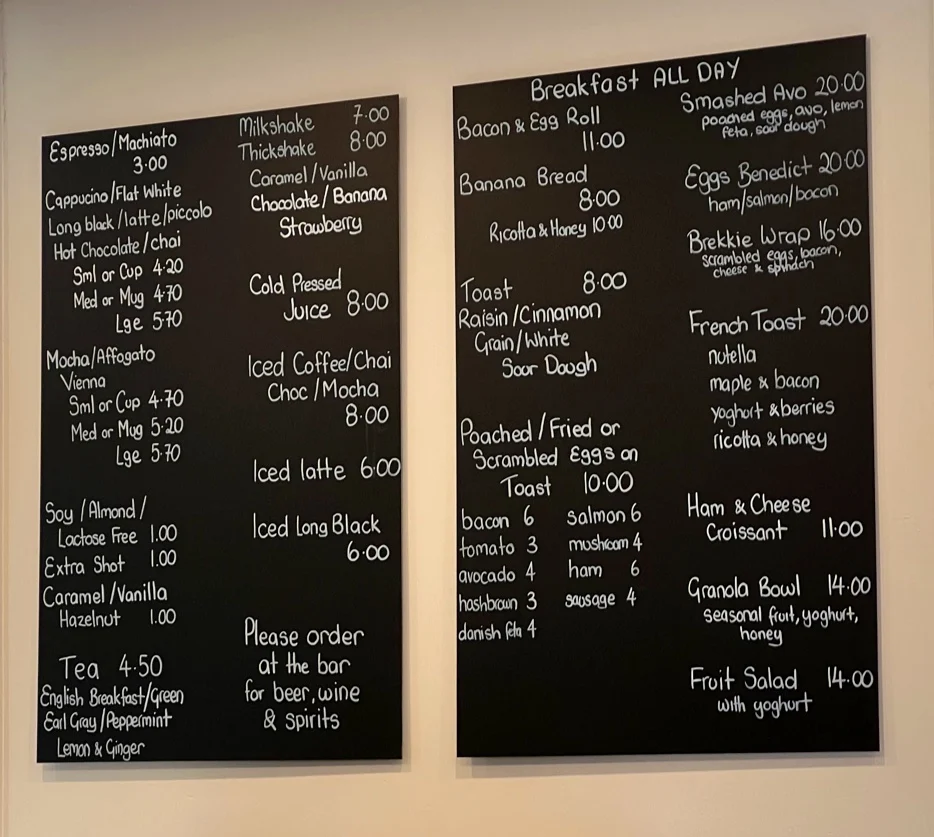 Espresso/Machiato
3.00
Cappucino/Flat White
Long black/latte/piccolo
Hot Chocolate/chai
Sml or Cup 4.20
Med or Mug 4.70
Lge 5.70
Mocha/Affogato
Vienna
Sml or Cup 4.70
Med or Mug 5.20
Lge 5.70
Soy/Almond/
Lactose Free 1.00
Extra Shot 1.00
Caramel/Vanilla
Hazelnut 1.00
Tea 4.50
English Breakfast/Green
Earl Gray/Peppermint
Lemon & Ginger
Milkshake 7.00
Thickshake 8.00
Caramel/Vanilla
Chocolate/Banana
Strawberry
Cold Pressed
Juice 8.00
Iced Coffee/Chai
Choc/Mocha
8.00
Iced latte 6.00
Iced Long Black
6.00
Please order
at the bar
for beer, wine
& spirits
Breakfast ALL DAY
Bacon & Egg Roll
11.00
Banana Bread
8.00
Ricotta & Honey 10.00
Toast 8.00
Raisin/Cinnamon
Grain/White
Sour Dough
Poached/Fried or
Scrambled Eggs on
Toast 10.00
bacon 6 salmon 6
tomato 3 mushroom 4
avocado 4 ham 6
hashbrown 3 sausage 4
danish feta 4
Smashed Avo 20.00
poached eggs, avo, lemon
feta, sour dough
Eggs Benedict 20.00
ham/salmon/bacon
Brekkie Wrap 16.00
scrambled eggs, bacon,
cheese & spinach
French Toast 20.00
nutella
maple & bacon
yoghurt & berries
ricotta & honey
Ham & Cheese
Croissant 11.00
Granola Bowl 14.00
seasonal fruit, yoghurt,
honey
Fruit Salad 14.00
with yoghurt